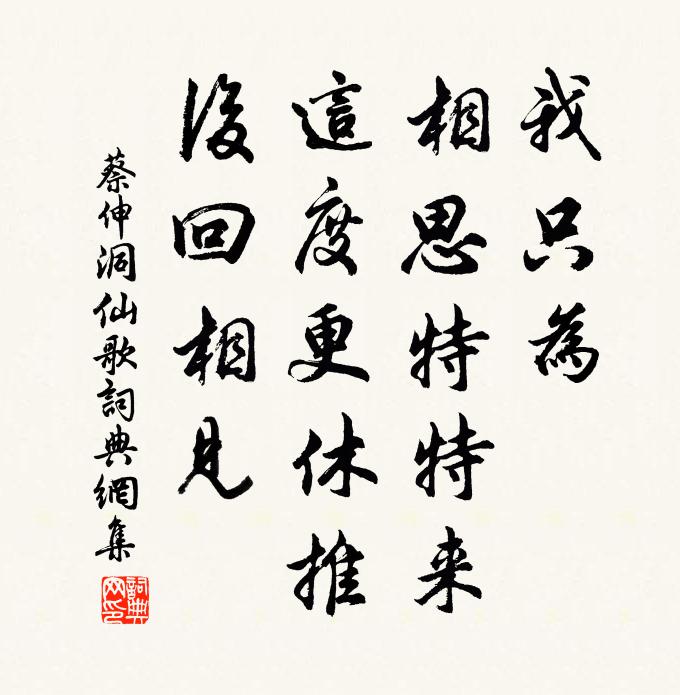 我只為
相思特特来
這度更休推
後回相見
蔡伸洞仙歌詞典網集
詞典網印